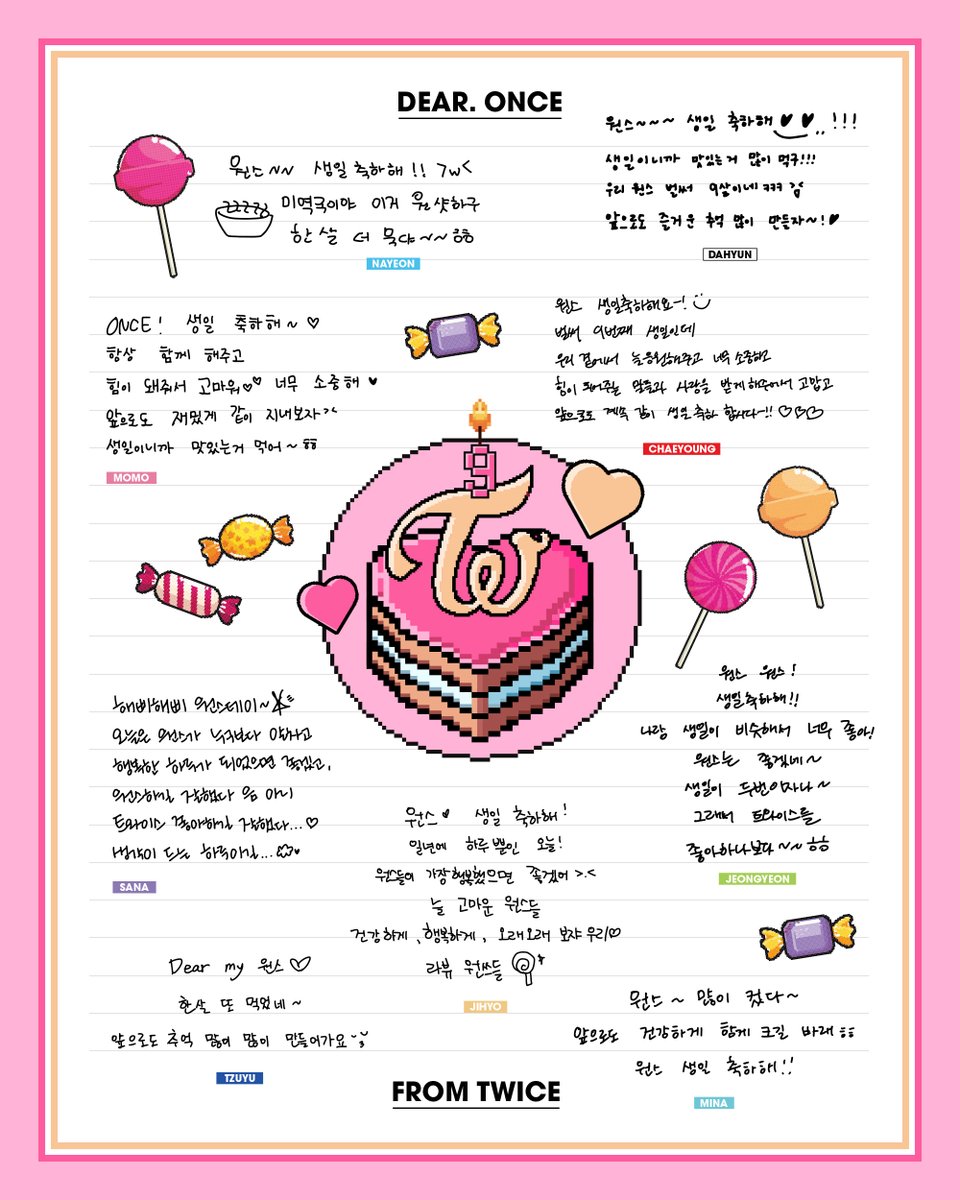 DEAR. ONCE
원스~~ 생일 축하해!! >w<
미역국이야 이거 원샷하구
한 살 더 묵자~~ㅎㅎ
NAYEON
원스~~~ 생일 축하해♥♥..!!!
생일이니까 맛있는거 많이 먹구!!!
우리 원스 벌써 9살이네 ㅋㅋㅋ
앞으로도 즐거운 추억 많이 만들자~!♥
DAHYUN
ONCE! 생일 축하해~♡
항상 함께 해주고
힘이 돼줘서 고마워♡♡ 너무 소중해♥
앞으로도 재밌게 같이 지내보자><
생일이니까 맛있는거 먹어~ㅎㅎ
MOMO
원스 생일축하해요~! :)
벌써 9번째 생일인데
우리 곁에서 늘 응원해주고 너무 소중하고
힘이 되어주는 말들과 사랑을 받게 해줘서 고맙고
앞으로도 계속 같이 생일 축하 합시다~!! ♡♡♡
CHAEYOUNG
9
TW
해삐해삐 원스데이~
오늘은 원스가 누구보다 행복하고
행복한 하루가 되었으면 좋겠고,
원스하길 잘했다 음 아니
트와이스 좋아하길 잘했다...♡
생각이 드는 하루이길...♥
SANA
원스 원스!
생일축하해!!
나랑 생일이 비슷해서 너무 좋아!
원스는 좋겠네~
생일이 두번이자나~
그래서 트와이스를
좋아하나보다~~ㅎㅎ
JEONGYEON
원스♥ 생일 축하해!
일년에 하루뿐인 오늘!
원스들이 가장행복했으면 좋겠어 >.<
늘 고마운 원스들
건강하게, 행복하게, 오래오래 보쟈 우리♡
라뷰 원쓰들
JIHYO
Dear my 원스♡
한살 또 먹었네~
앞으로도 추억 많이 많이 만들어가요
TZUYU
원스~ 많이 컸다~
앞으로도 건강하게 함께 크길 바래ㅎㅎ
원스 생일 축하해!!
MINA
FROM TWICE